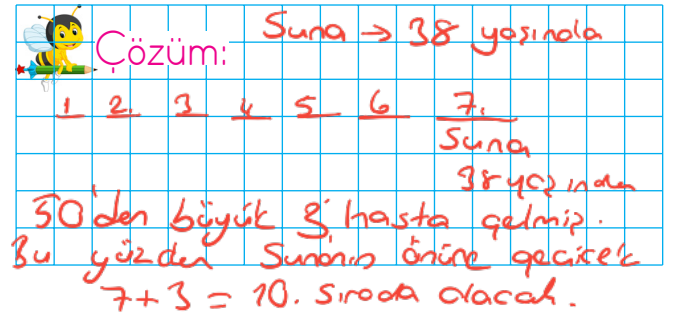 Çözüm:
Suna → 38 yaşında
1 2. 3 4 5 6 7.
Suna
38 yaşından
50'den büyük 3 hasta gelmiş.
Bu yüzden Sunanın önüne geçicek
7+3 = 10. Sırada olacak.